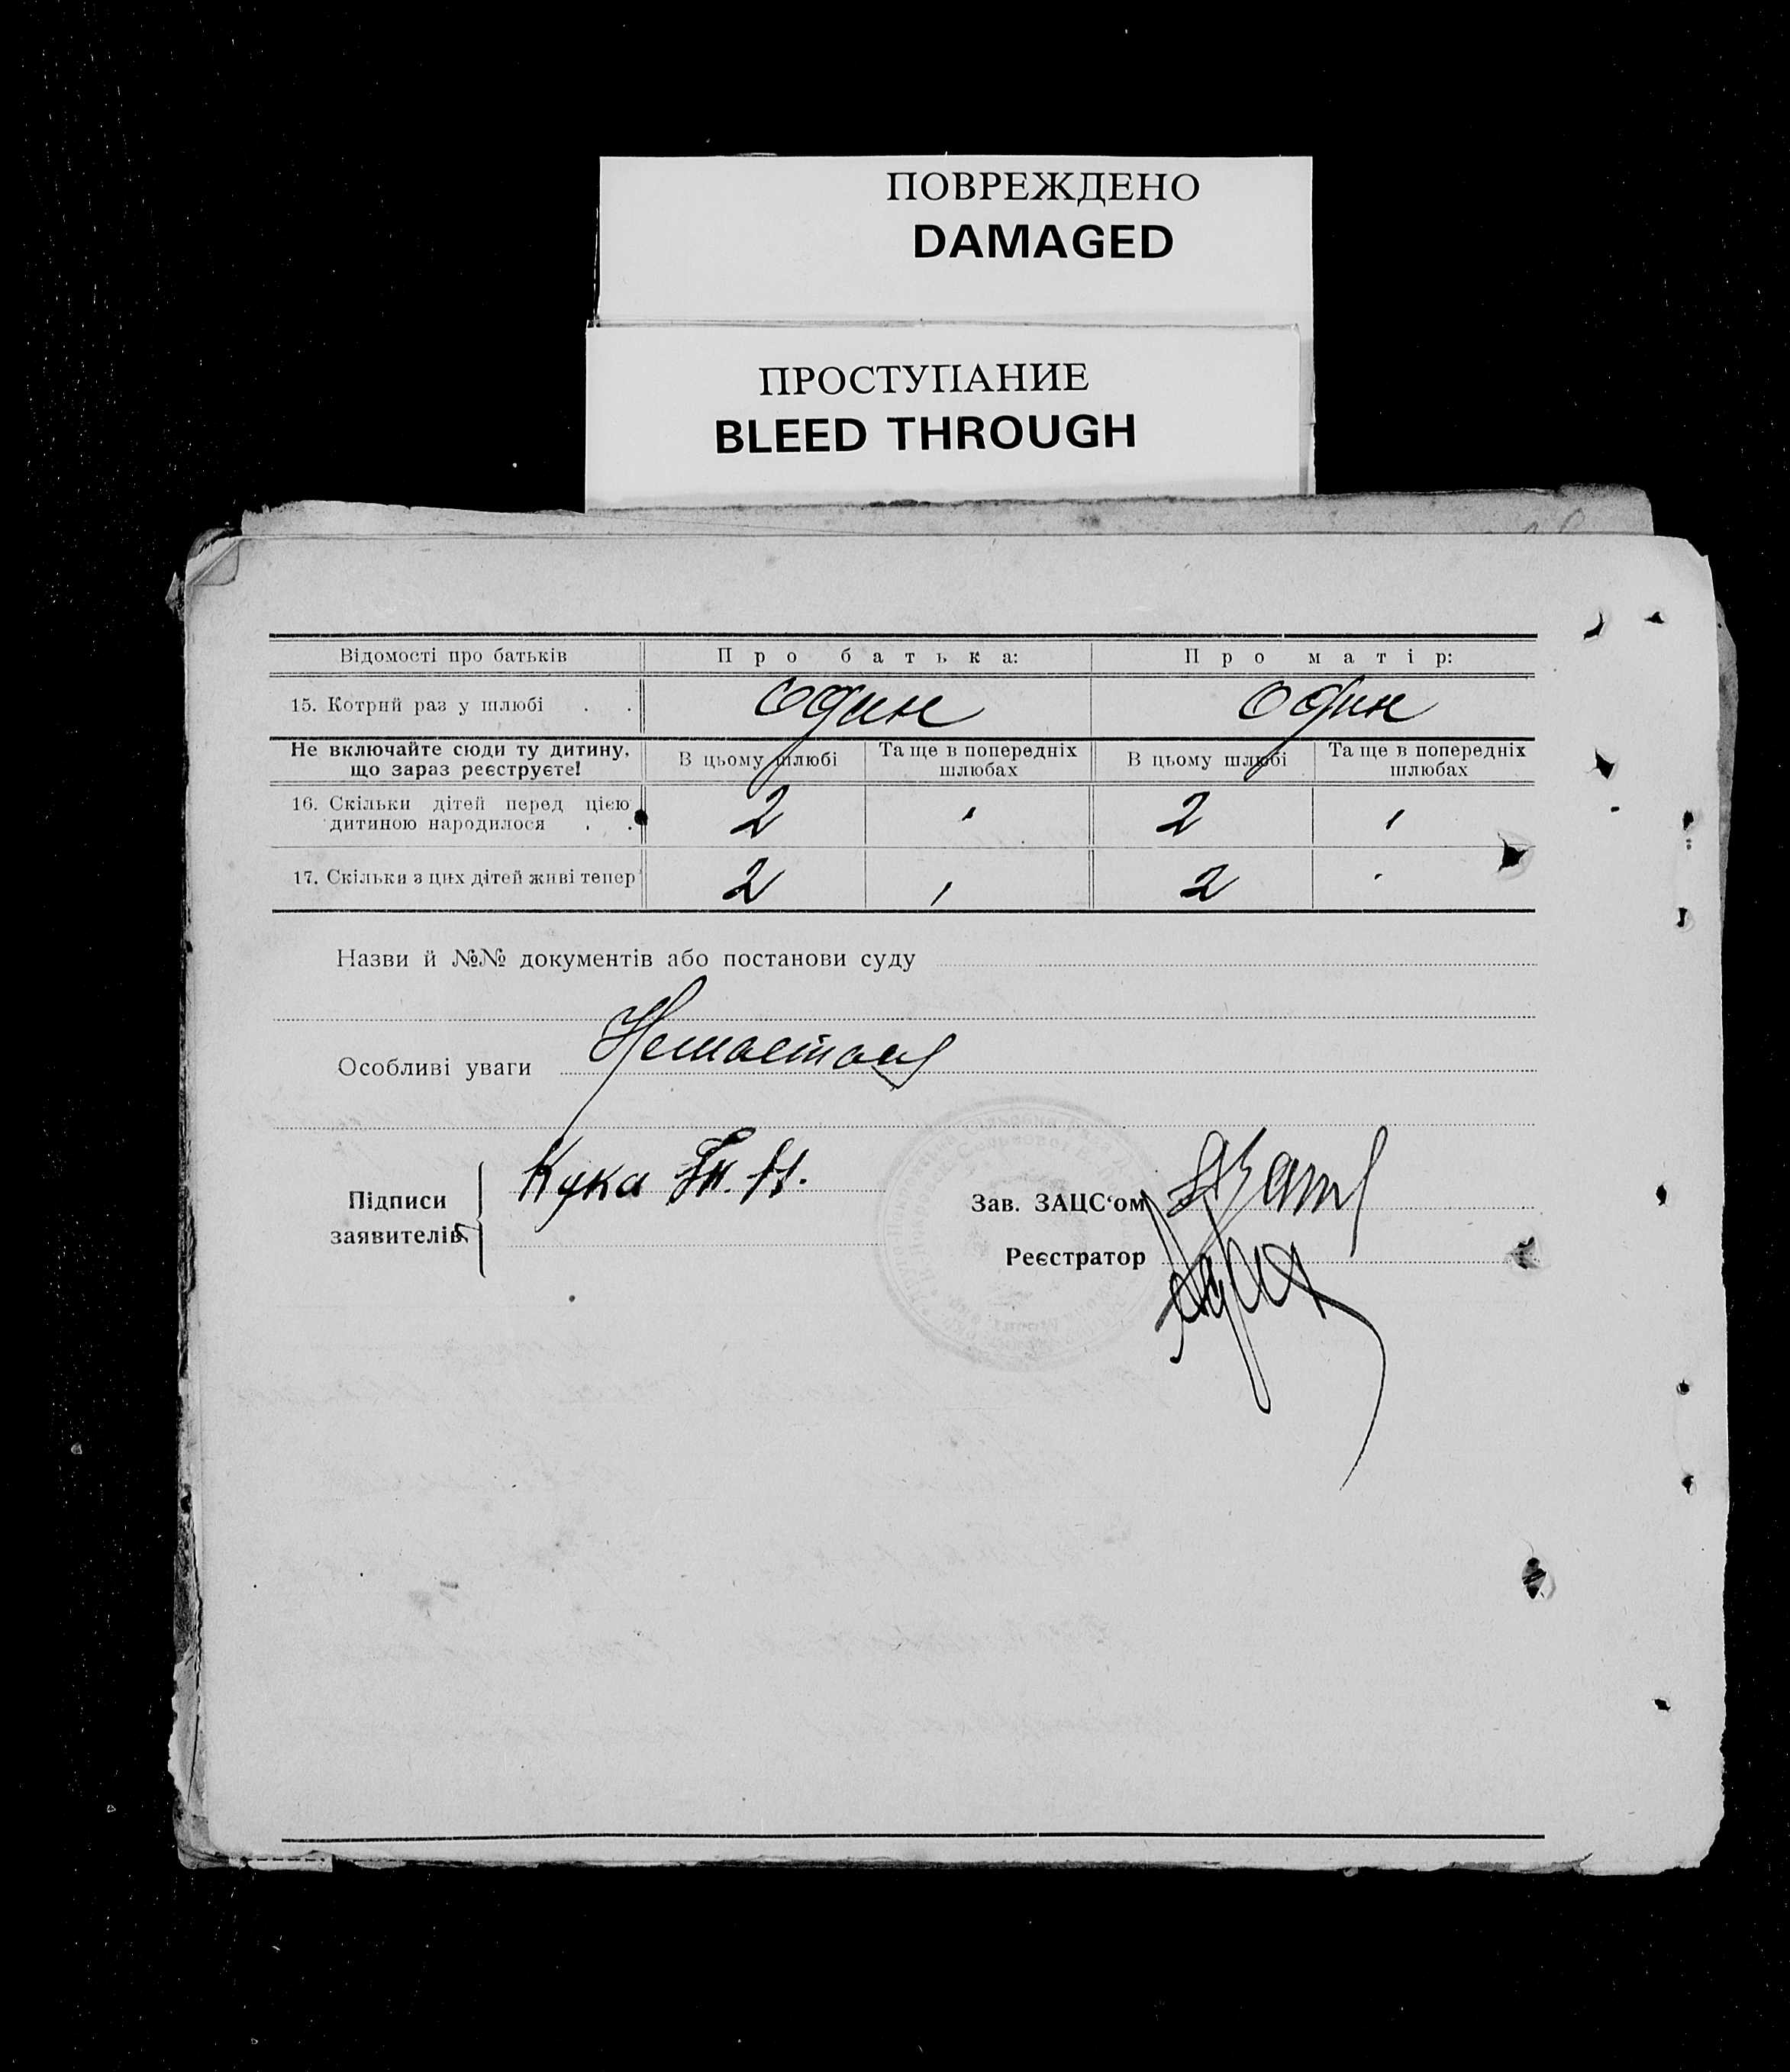 ПОВРЕЖДЕНО
DAMAGED
ПРОСТУПАНИЕ
BLEED THROUGH
Відомості про батьків Про батька: Про матір:
15. Котрий раз у шлюбі . . один один
Не включайте сюди ту дитину, що зараз реєструєте! В цьому шлюбі Та ще в попередніх шлюбах В цьому шлюбі Та ще в попередніх шлюбах
16. Скільки дітей перед цією
дитиною народилося . . 2 2
17. Скільки з цих дітей живі тепер 2 2
Назви й №№ документів або постанови суду
Особливі уваги
Підписи
заявителів
Кука
Зав. ЗАЦС‘ом
Реєстратор